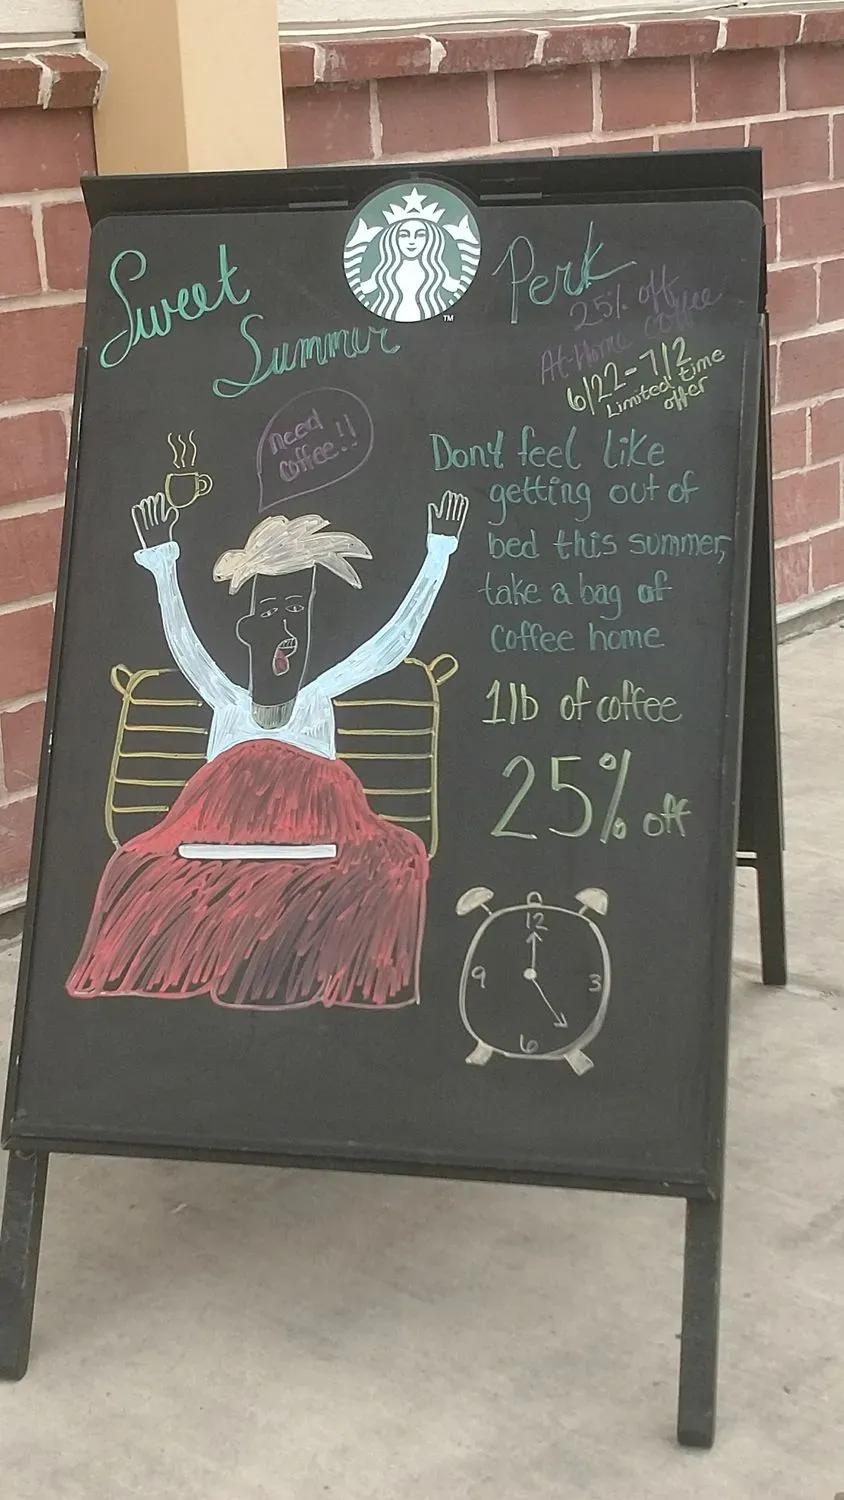 Sweet
Summer
Perk
25% off
At-Home coffee
6/22-7/2
Limited time
offer
need
coffee!!
Don't feel like
getting out of
bed this summer,
take a bag of
coffee home
1lb of coffee
25% off
12
9
3
6
TM